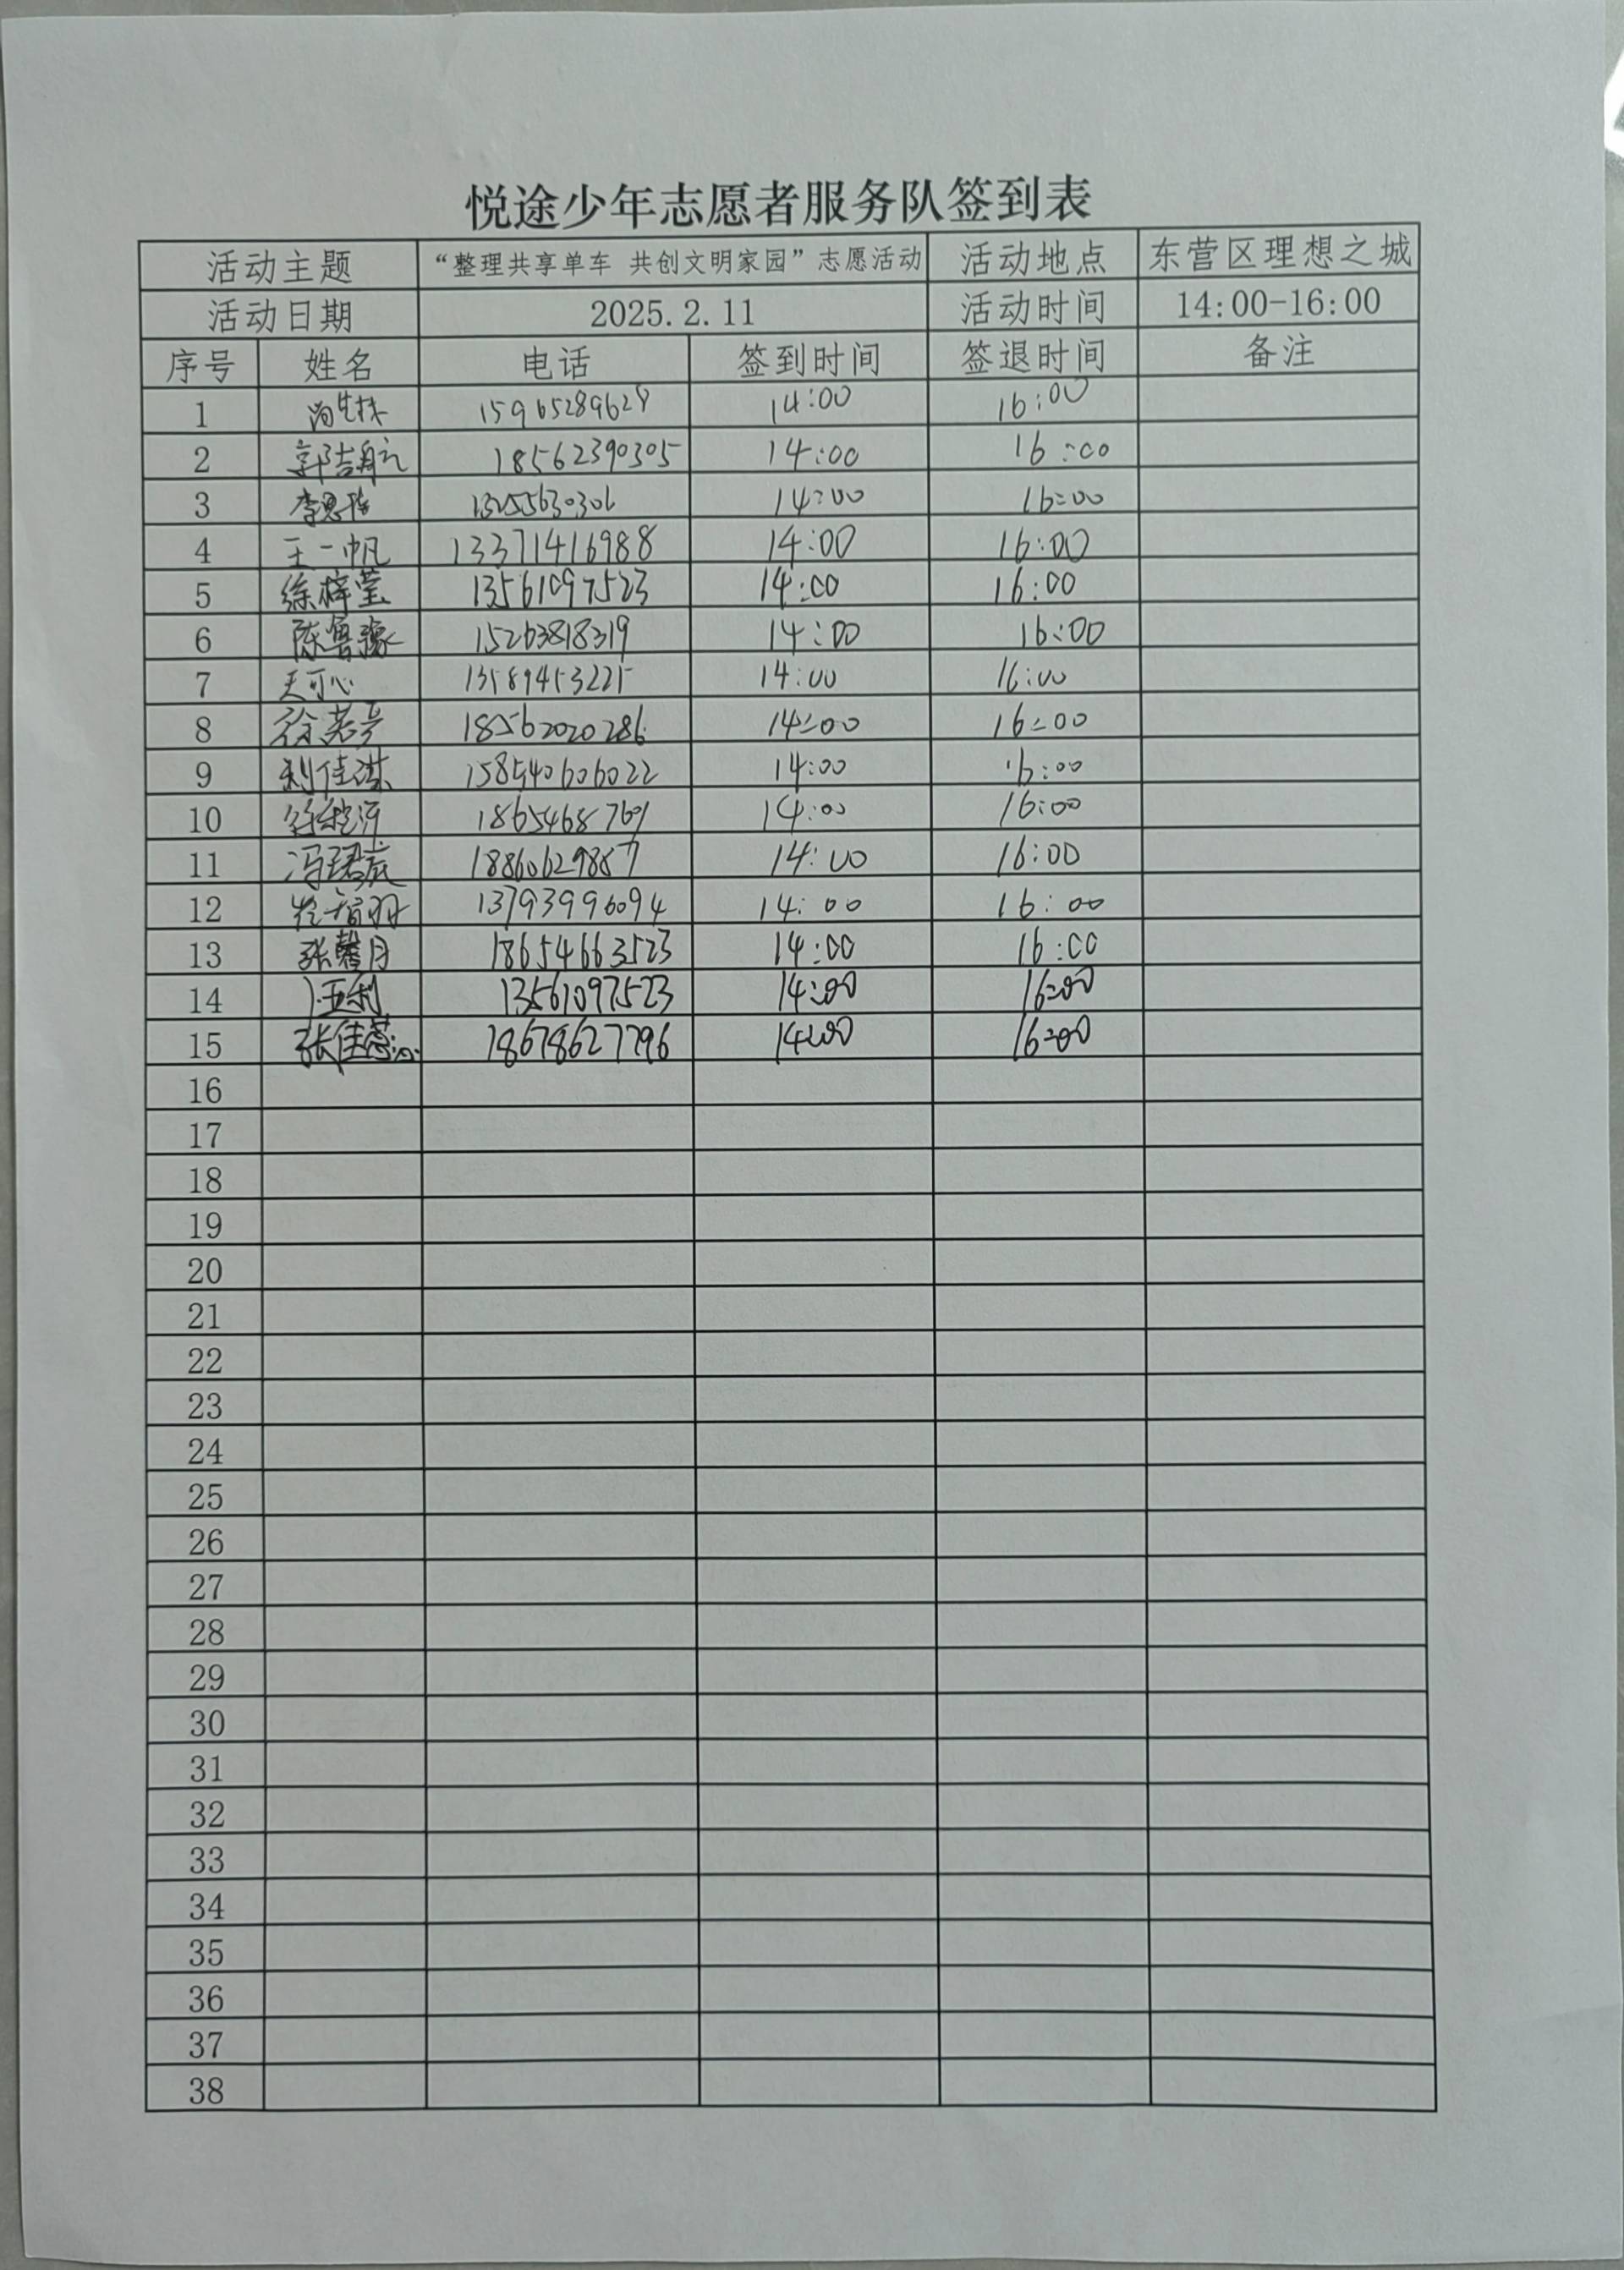 悦途少年志愿者服务队签到表
活动主题 “整理共享单车 共创文明家园”志愿活动 活动地点 东营区理想之城
活动日期 2025.2.11 活动时间 14:00-16:00
序号 姓名 电话 签到时间 签退时间 备注
1 15965289628 14:00 16:00
2 郭洁航 18562390305 14:00 16:00
3 14:00 16:00
4 王一帆 13371416988 14:00 16:00
5 徐梓莹 13561097523 14:00 16:00
6 陈鲁豫 15263818319 14:00 16:00
7 13589453225 14:00 16:00
8 18562020286 14:00 16:00
9 158540606022 14:00 16:00
10 14:00 16:00
11 18860629887 14:00 16:00
12 13793996094 14:00 16:00
13 张馨月 18654663523 14:00 16:00
14 13561097523 14:00 16:00
15 18678627796 14:00 16:00
16
17
18
19
20
21
22
23
24
25
26
27
28
29
30
31
32
33
34
35
36
37
38